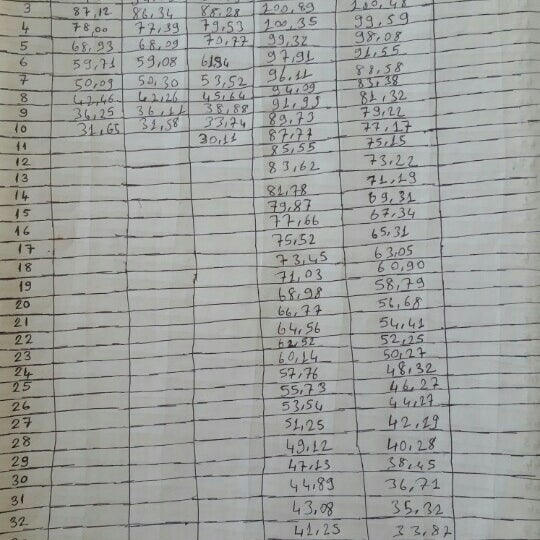 3 87,12 86,34 88,28 100,89 100,48
4 78,00 77,39 79,53 100,35 99,59
5 68,93 68,09 70,77 99,32 98,08
6 59,71 59,08 6194 97,91 91,55
7 50,09 50,30 53,52 96,11 88,58
8 42,46 42,26 45,64 94,09 83,38
9 36,25 36,11 38,88 91,93 81,32
10 31,65 31,58 33,74 89,73 79,22
11 30,11 87,77 77,17
12 85,55 75,15
13 83,62 73,22
14 81,78 71,19
15 79,87 69,31
16 77,66 67,34
17 75,52 65,31
18 73,45 63,05
19 71,03 60,90
20 68,98 58,79
21 66,77 56,68
22 64,56 54,41
23 62,52 52,25
24 60,14 50,27
25 57,76 48,32
26 55,73 46,27
27 53,54 44,27
28 51,25 42,19
29 49,12 40,28
30 47,13 38,45
31 44,89 36,71
32 43,08 35,32
41,25 33,87